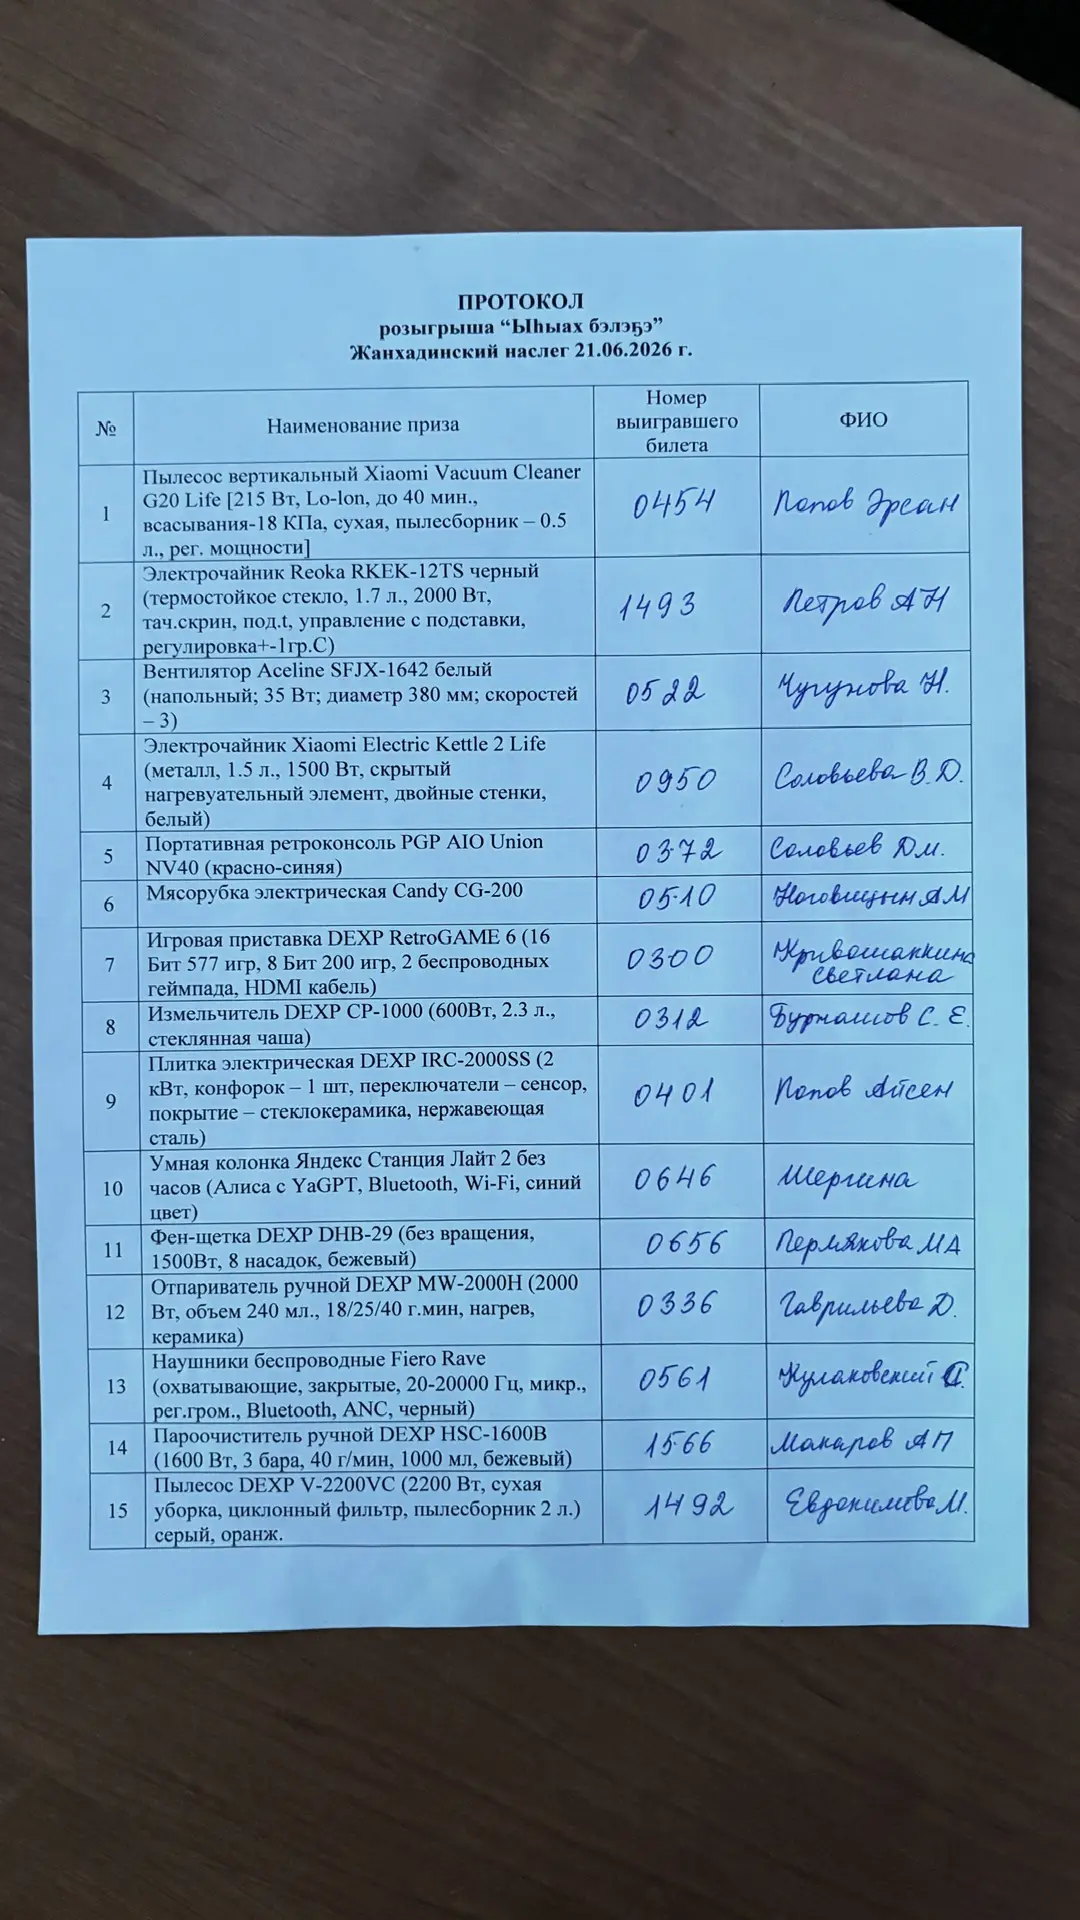 ПРОТОКОЛ
розыгрыша “Ыһыах бэлэҕэ”
Жанхадинский наслег 21.06.2026 г.
№
Наименование приза
Номер
выигравшего
билета
ФИО
1
Пылесос вертикальный Xiaomi Vacuum Cleaner
G20 Life [215 Вт, Lo-lon, до 40 мин.,
всасывания-18 КПа, сухая, пылесборник – 0.5
л., рег. мощности]
0454
Попов Эрсан
2
Электрочайник Reoka RKEK-12TS черный
(термостойкое стекло, 1.7 л., 2000 Вт,
тач.скрин, под.t, управление с подставки,
регулировка+-1гр.С)
1493
Петров А Н
3
Вентилятор Aceline SFJX-1642 белый
(напольный; 35 Вт; диаметр 380 мм; скоростей
– 3)
0522
Чугунова Н.
4
Электрочайник Xiaomi Electric Kettle 2 Life
(металл, 1.5 л., 1500 Вт, скрытый
нагревуательный элемент, двойные стенки,
белый)
0950
Соловьева В.Д.
5
Портативная ретроконсоль PGP AIO Union
NV40 (красно-синяя)
0372
Соловьев Дм.
6
Мясорубка электрическая Candy CG-200
0510
Ноговицын АМ
7
Игровая приставка DEXP RetroGAME 6 (16
Бит 577 игр, 8 Бит 200 игр, 2 беспроводных
геймпада, HDMI кабель)
0300
Кривошапкина
Светлана
8
Измельчитель DEXP CP-1000 (600Вт, 2.3 л.,
стеклянная чаша)
0312
Бурнашов С. Е.
9
Плитка электрическая DEXP IRC-2000SS (2
кВт, конфорок – 1 шт, переключатели – сенсор,
покрытие – стеклокерамика, нержавеющая
сталь)
0401
Попов Айсен
10
Умная колонка Яндекс Станция Лайт 2 без
часов (Алиса с YaGPT, Bluetooth, Wi-Fi, синий
цвет)
0646
Шергина
11
Фен-щетка DEXP DHB-29 (без вращения,
1500Вт, 8 насадок, бежевый)
0656
Пермякова МА
12
Отпариватель ручной DEXP MW-2000H (2000
Вт, объем 240 мл., 18/25/40 г.мин, нагрев,
керамика)
0336
Гаврильева Д.
13
Наушники беспроводные Fiero Rave
(охватывающие, закрытые, 20-20000 Гц, микр.,
рег.гром., Bluetooth, ANC, черный)
0561
Кулаковский
14
Пароочиститель ручной DEXP HSC-1600B
(1600 Вт, 3 бара, 40 г/мин, 1000 мл, бежевый)
1566
Макаров АП
15
Пылесос DEXP V-2200VC (2200 Вт, сухая
уборка, циклонный фильтр, пылесборник 2 л.)
серый, оранж.
1492
Евдокимова М.